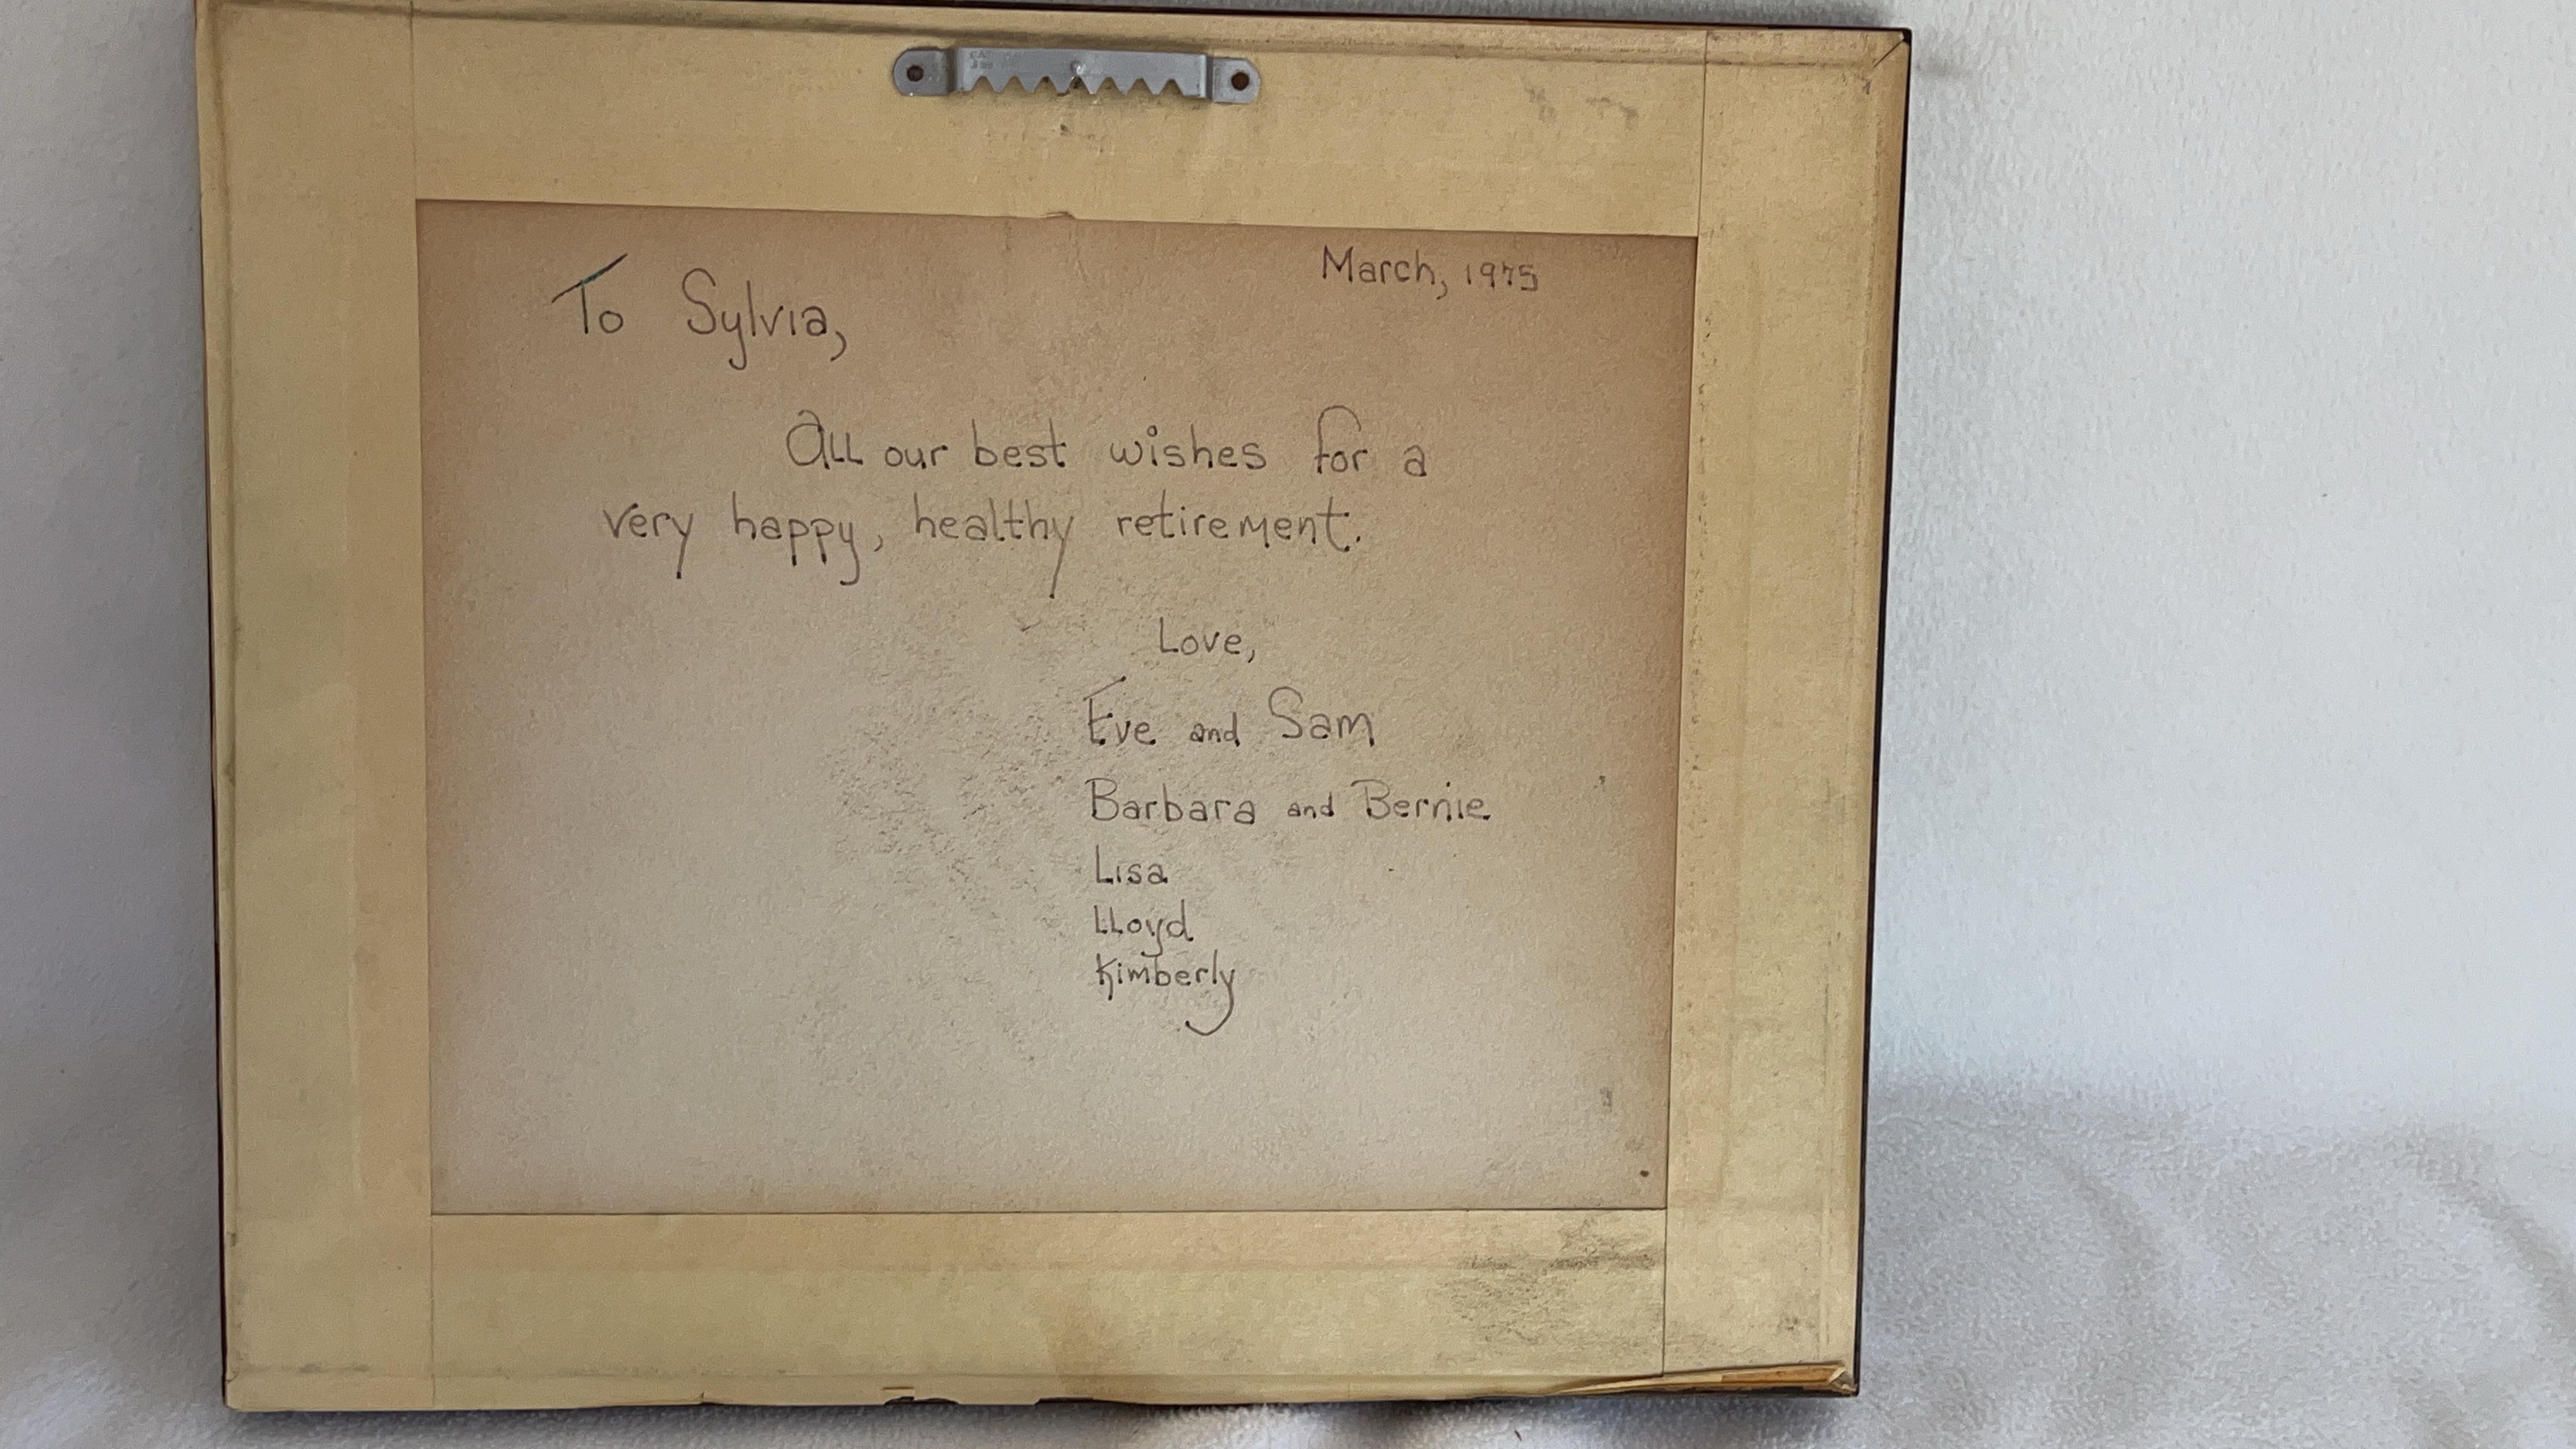 March, 1975
To Sylvia,
All our best wishes for a
very happy, healthy retirement.
Love,
Eve and Sam
Barbara and Bernie
Lisa
Lloyd
Kimberly